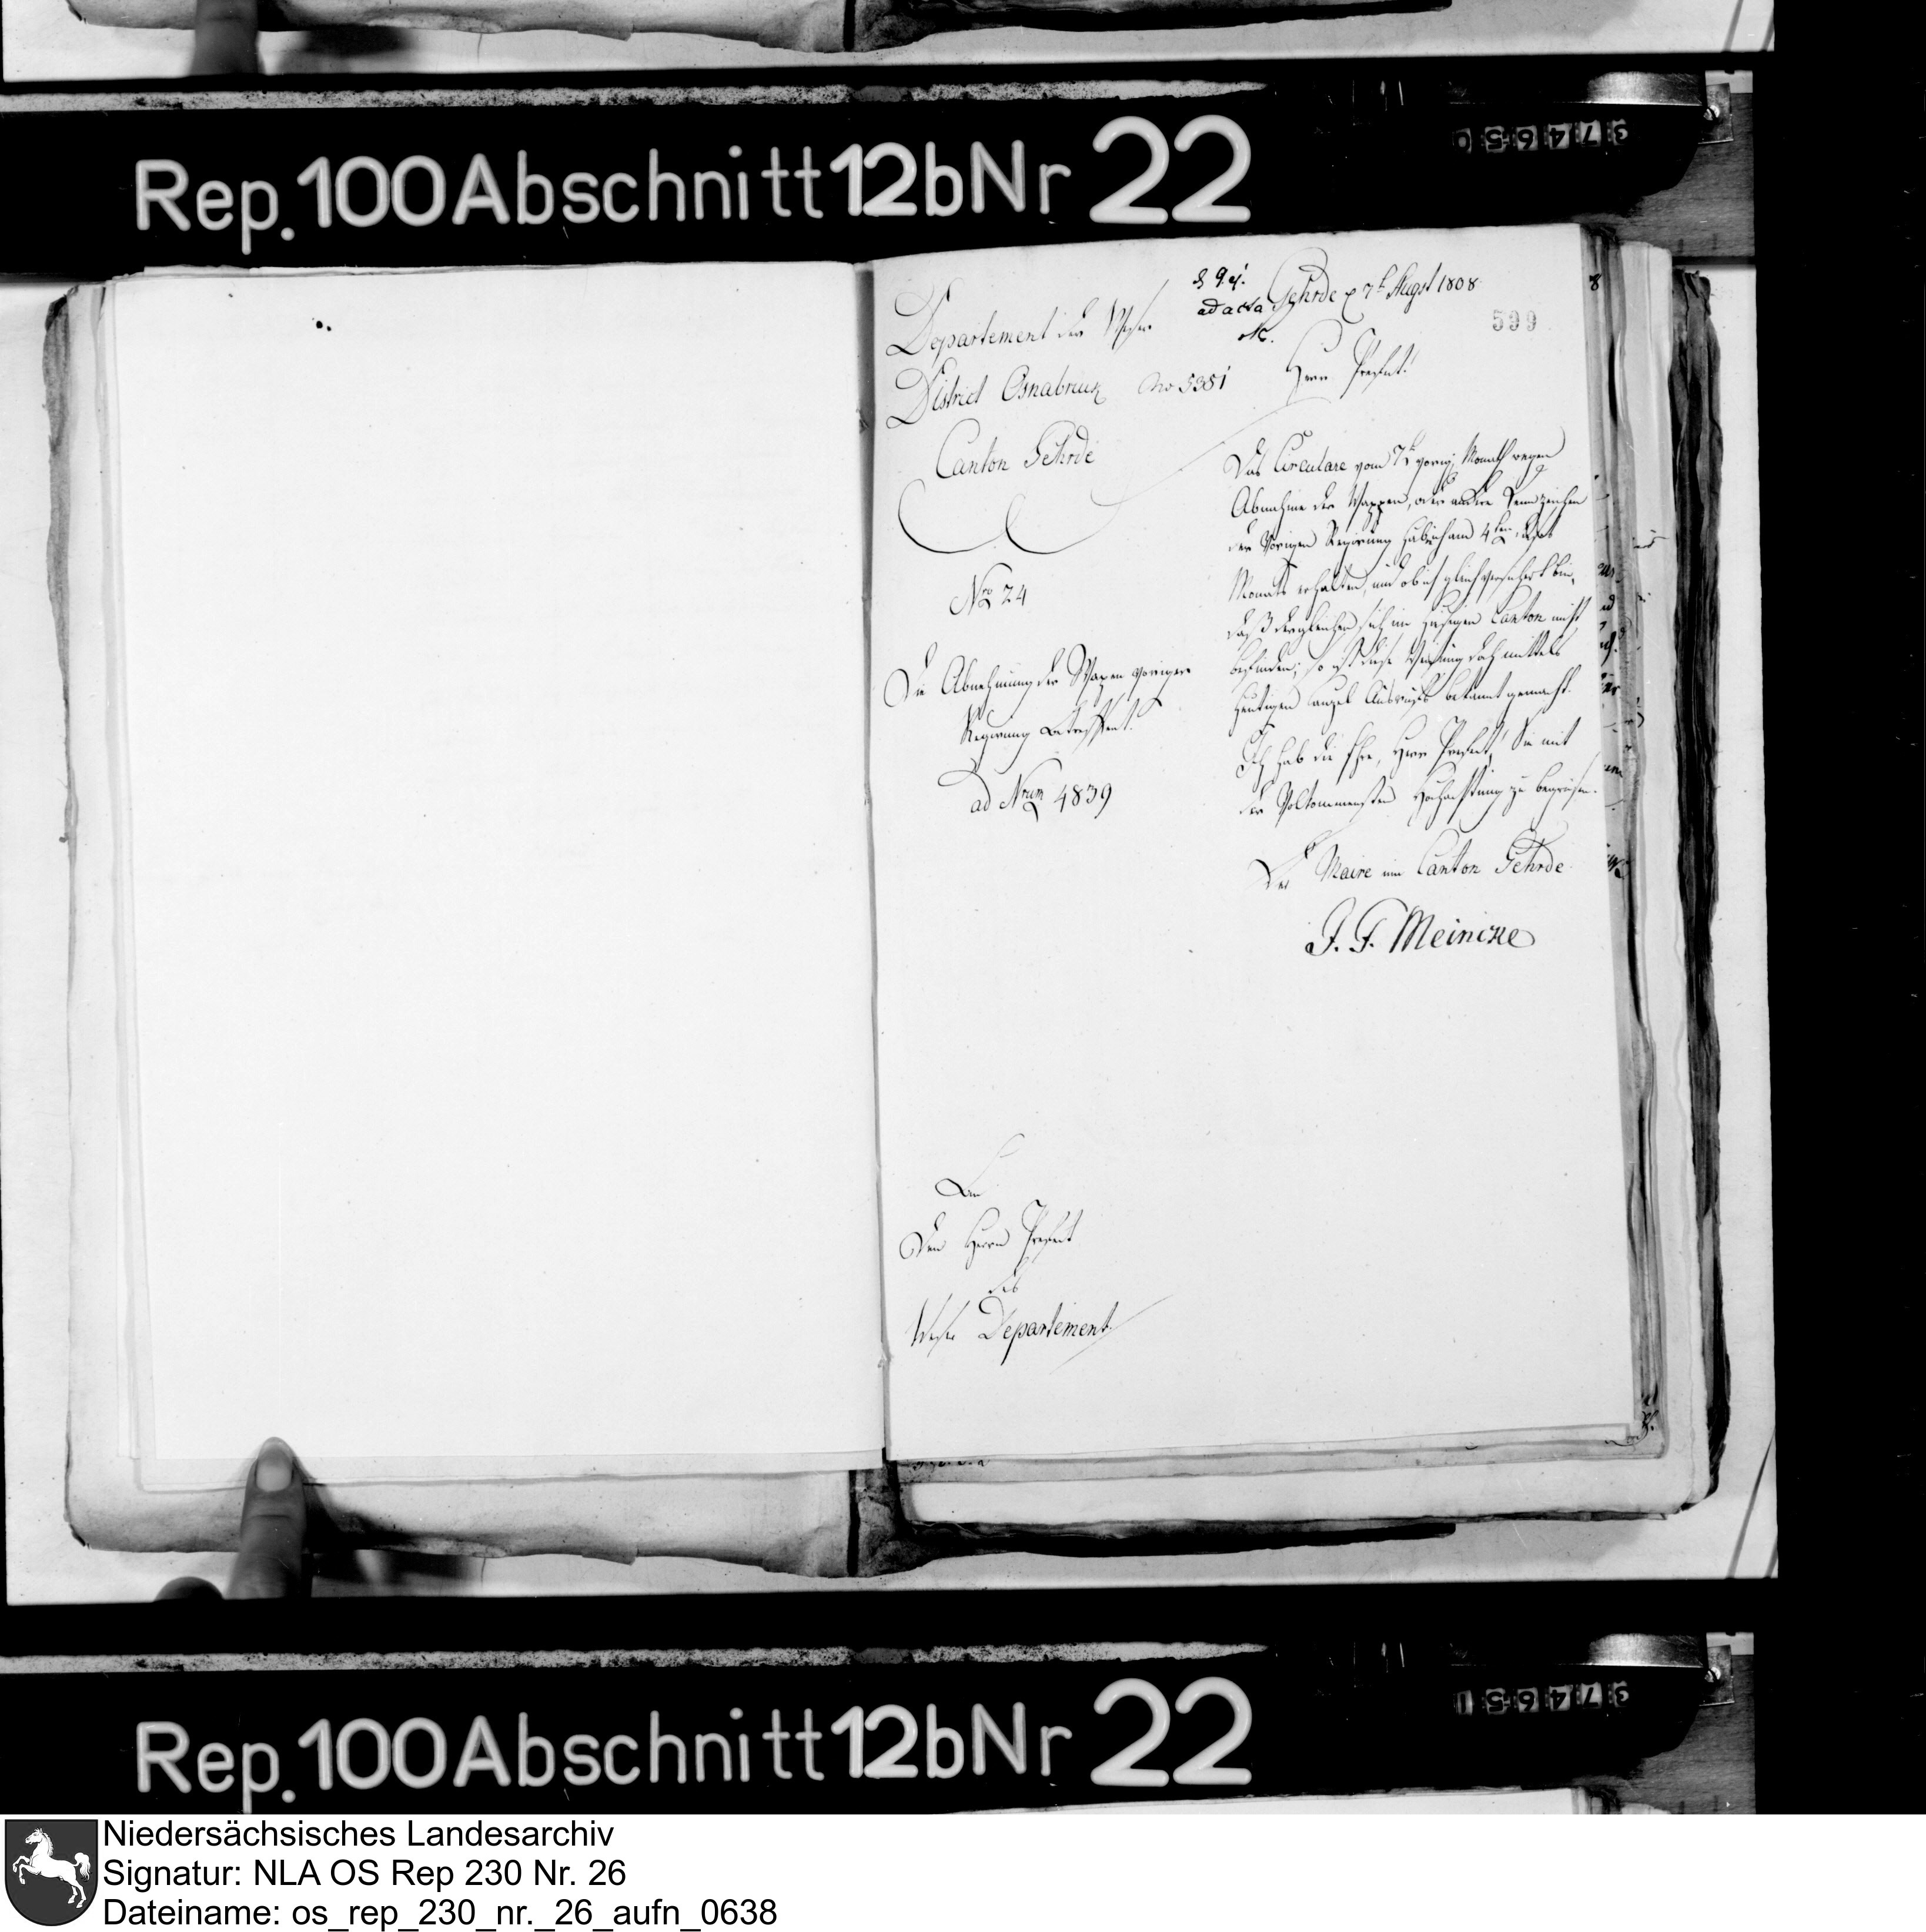 Rep. 100 Abschnitt 12b Nr 22
374650
Departement der Weser
District Osnabrück No 5381
Canton Gehrde
Nro 24
Die Abnehmung der Wapen voriger
Regirung betreffent.
ad Nrum 4839
ad acta
Gehrde 7t Augst 1808
599
Herr Prefect!
Das Circulare vom 7t vorig. Monath wegen
Abnahme der Wappen, oder andere Kennzeichen
der Vorigen Regirung habe ich am 4ten dieses
Monats erhalten, und ob ich gleich versichert bin,
daß dergleichen sich im hiesigen Canton nicht
befinden; so ist diese Weisung doch mittels
heutigen Canzel Ausrufs bekannt gemacht.
Ich hab die Ehre, Herr Prefect! Sie mit
der Volkommensten Hochachtung zu begrüsen.
Der Maire im Canton Gehrde
J. F. Meincke
An
Den Herrn Prefect
des
Weser Departement
Rep. 100 Abschnitt 12b Nr 22
374651
Niedersächsisches Landesarchiv
Signatur: NLA OS Rep 230 Nr. 26
Dateiname: os_rep_230_nr._26_aufn_0638